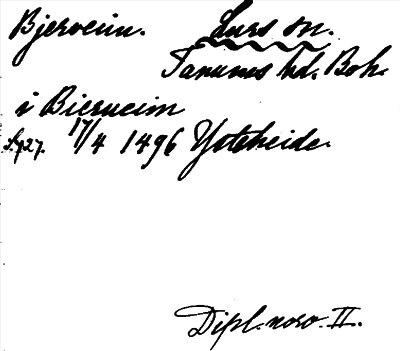 Bjerveim. Lurs sn.
Tanums hd. Boh.
i Bierueim
S. 727. 17/4 1496 Ysteheide.
Dipl. norv. II.